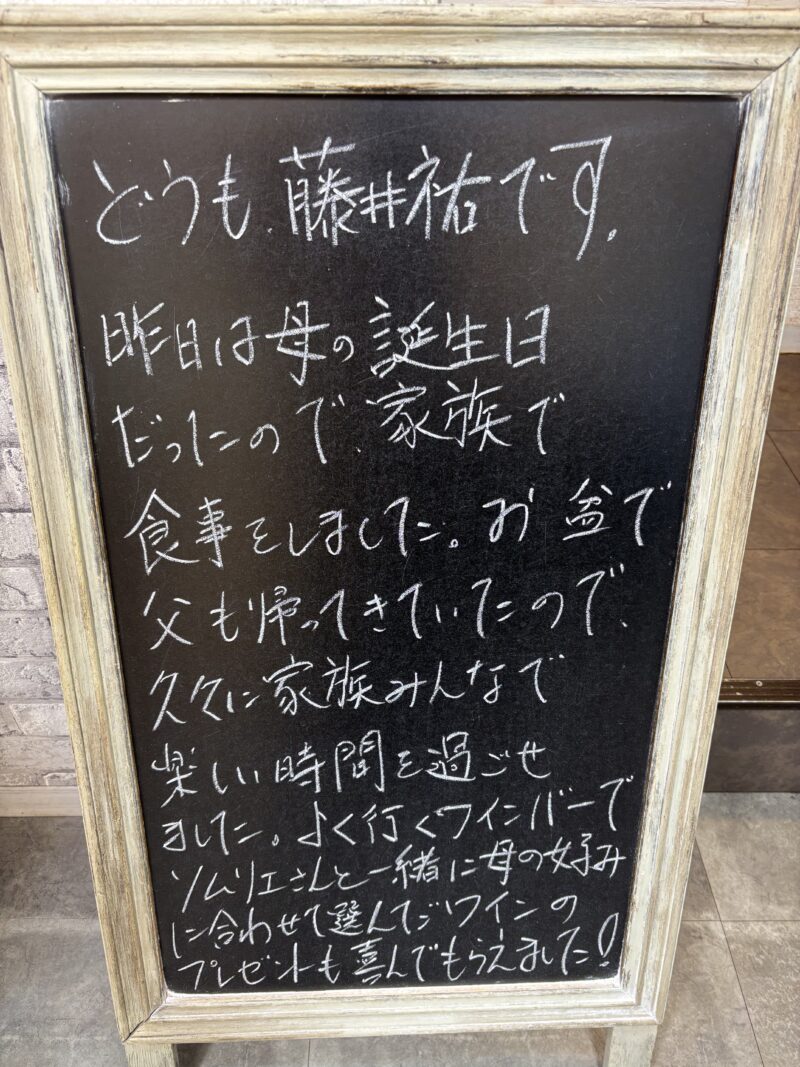 どうも、藤井祐です。
昨日は母の誕生日
だったので、家族で
食事をしました。お盆で
父も帰ってきていたので、
久々に家族みんなで
楽しい時間を過ごせ
ました。よく行くワインバーで
ソムリエさんと一緒に母の好み
に合わせて選んだワインの
プレゼントも喜んでもらえました!